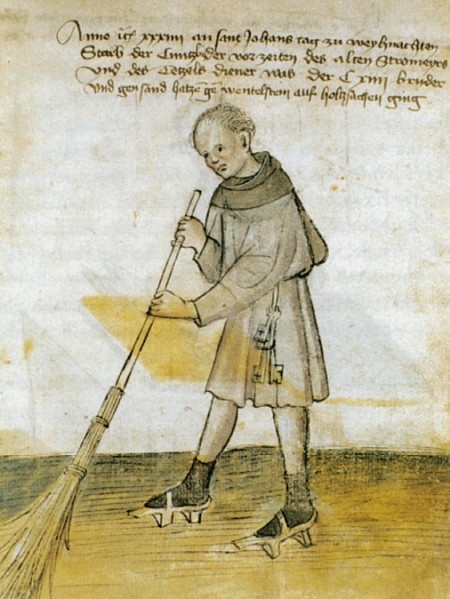 Anno xxxiiii an sant Johans tag zu weyhnachten
Starb der Cuntz der vor zeiten des alten Stromeyrs
Vnd des Tetzels diener was der C xiiii bruder
Vnd gen sand wentelstein auf ging